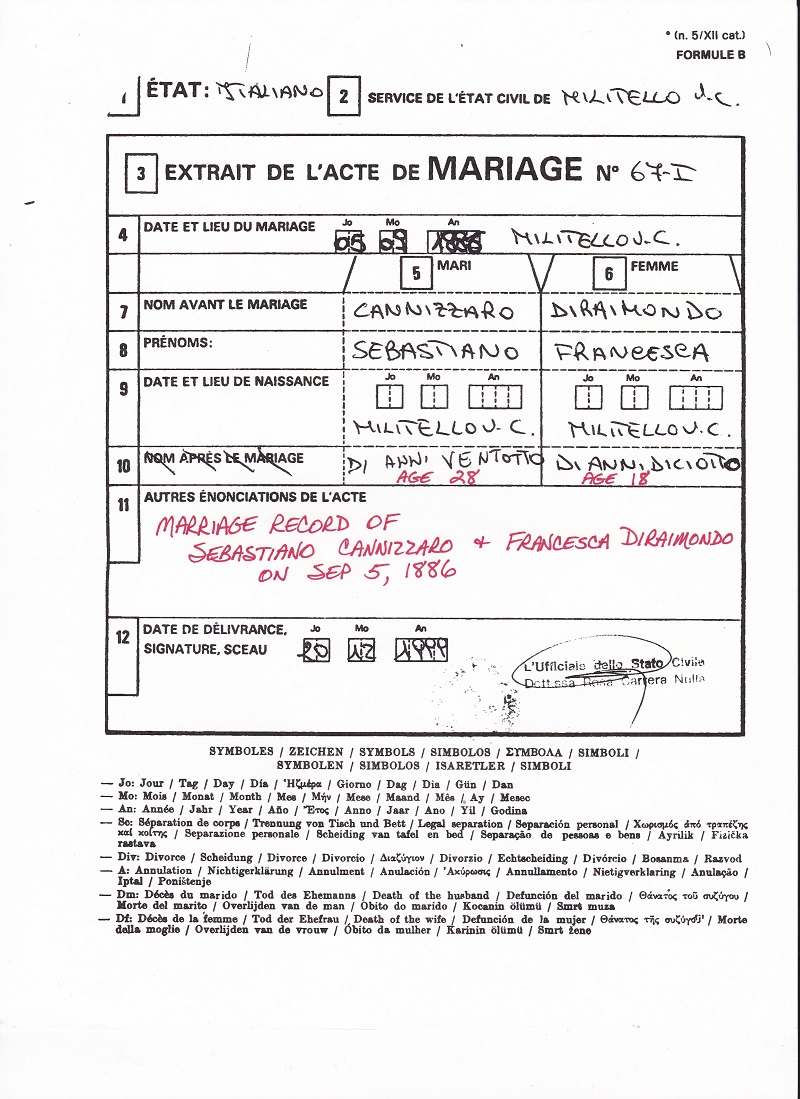 * (n. 5/XII cat.)
FORMULE B
1 ÉTAT: ITALIANO 2 SERVICE DE L'ÉTAT CIVIL DE MILITELLO V.C.
3 EXTRAIT DE L'ACTE DE MARIAGE N° 67-I
4 DATE ET LIEU DU MARIAGE Jo Mo An
05 09 1886 MILITELLO V.C.
5 MARI 6 FEMME
7 NOM AVANT LE MARIAGE CANNIZZARO DIRAIMONDO
8 PRÉNOMS: SEBASTIANO FRANCESCA
9 DATE ET LIEU DE NAISSANCE Jo Mo An Jo Mo An
MILITELLO V.C. MILITELLO V.C.
10 NOM APRÈS LE MARIAGE DI ANNI VENTOTTO DI ANNI DICIOTTO
AGE 28 AGE 18
11 AUTRES ÉNONCIATIONS DE L'ACTE
MARRIAGE RECORD OF
SEBASTIANO CANNIZZARO & FRANCESCA DIRAIMONDO
ON SEP 5, 1886
12 DATE DE DÉLIVRANCE, Jo Mo An
SIGNATURE, SCEAU 20 12 1999
L'Ufficiale dello Stato Civile
Dott.ssa Rosa Carrera Nulla
SYMBOLES / ZEICHEN / SYMBOLS / SIMBOLOS / ΣΥΜΒΟΛΑ / SIMBOLI /
SYMBOLEN / SIMBOLOS / ISARETLER / SIMBOLI
— Jo: Jour / Tag / Day / Día / Ἡμέρα / Giorno / Dag / Dia / Gün / Dan
— Mo: Mois / Monat / Month / Mes / Μήν / Mese / Maand / Mês / Ay / Mesec
— An: Année / Jahr / Year / Año / Ἔτος / Anno / Jaar / Ano / Yil / Godina
— Sc: Séparation de corps / Trennung von Tisch und Bett / Legal separation / Separación personal / Χωρισμός ἀπό τραπέζης
καί κοίτης / Separazione personale / Scheiding van tafel en bed / Separação de pessoas e bens / Ayrilik / Fizička
rastava
— Div: Divorce / Scheidung / Divorce / Divorcio / Διαζύγιον / Divorzio / Echtscheiding / Divórcio / Bosanma / Razvod
— A: Annulation / Nichtigerklärung / Annulment / Anulación / Ἀκύρωσις / Annullamento / Nietigverklaring / Anulação /
Iptal / Poništenje
— Dm: Décès du marido / Tod des Ehemanns / Death of the husband / Defunción del marido / Θάνατος τοῦ συζύγου /
Morte del marito / Overlijden van de man / Obito do marido / Kocanin ölümü / Smrt muza
— Df: Décès de la femme / Tod der Ehefrau / Death of the wife / Defunción de la mujer / Θάνατος τῆς συζύγου / Morte
della moglie / Overlijden van de vrouw / Óbito da mulher / Karinin ölümü / Smrt žene